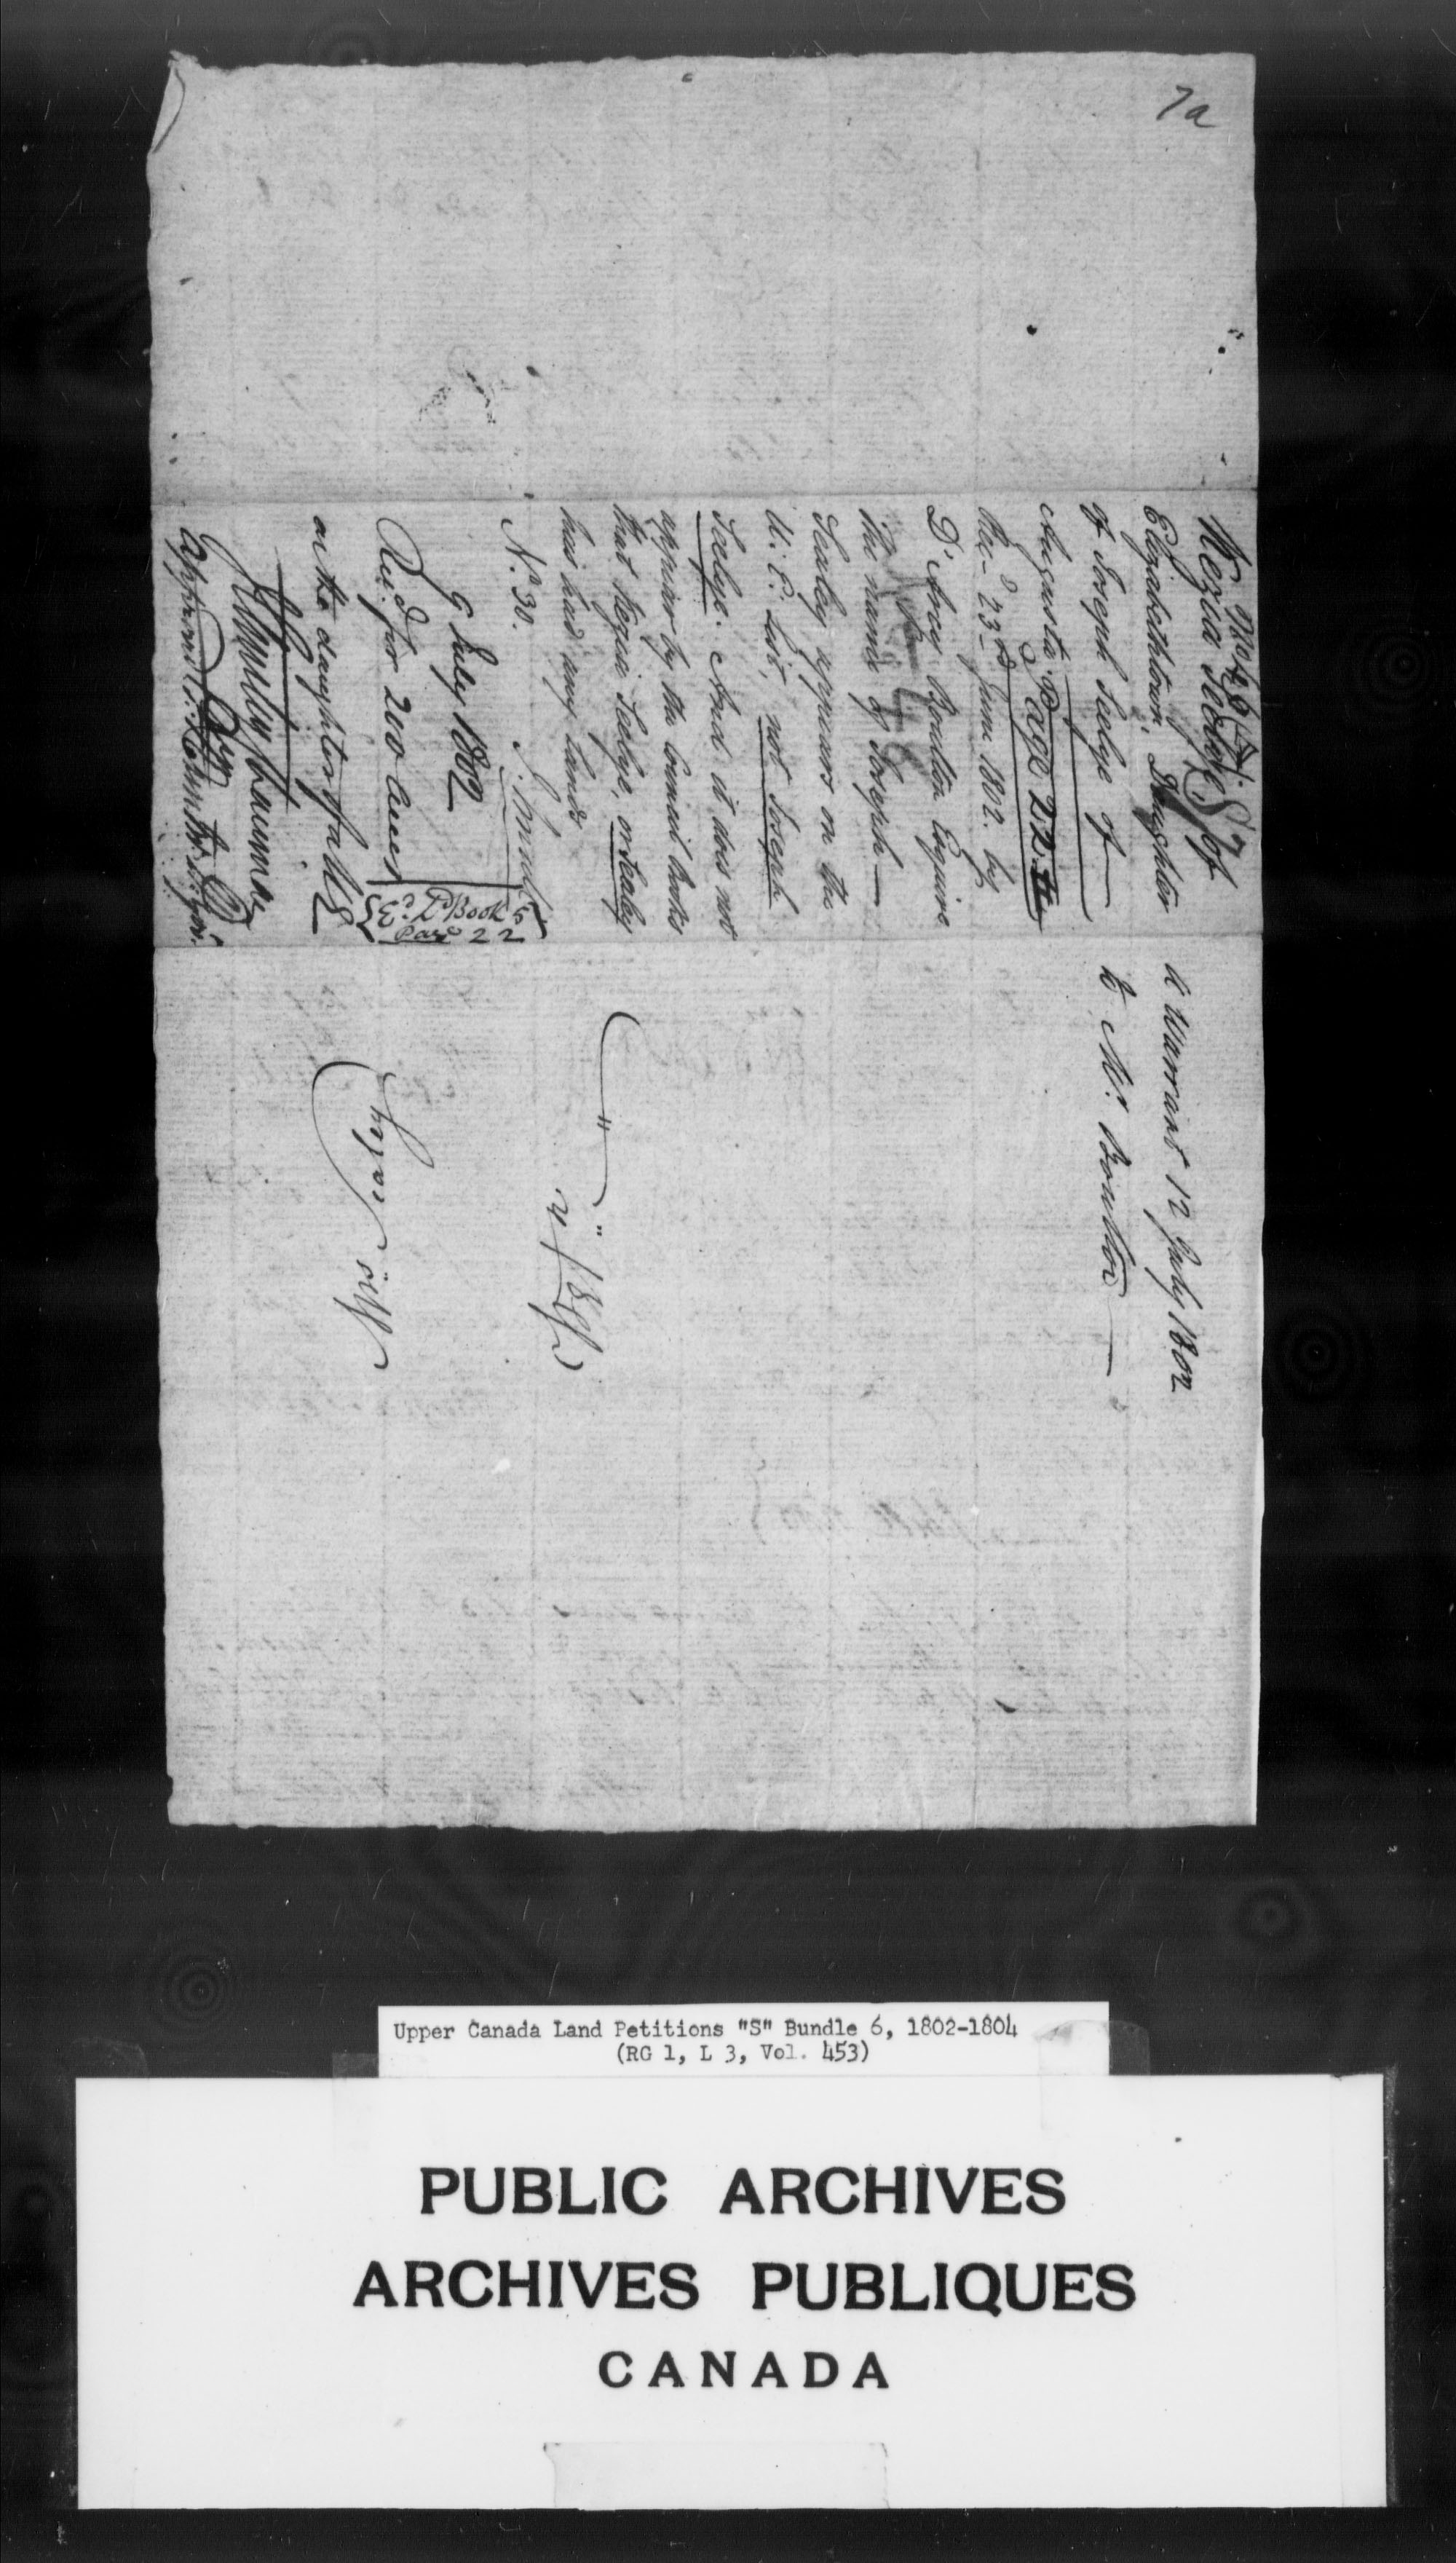 7a
No 46 S. 7
Kezia Seelye of
Elizabethtown, Daughter
of Joseph Seelye of
Augusta. Page 22
Rec.d 23.d June 1802. by
D'Arcy Boulton Esquire
The name of Joseph
Sealey appears on the
U. E. List, not Joseph
Seelye. And it does not
appear by the Council books
that Kezia Seelye, or Sealey
has had any lands
N.o 30. J. Small
Ld Book 5
Page 22
9 July 1802
Rec.d for 200 Acres
as the daughter of a UE
Chairman
Approved.
A Warrant 12 July 1802
to Mr. Boulton
Upper Canada Land Petitions "S" Bundle 6, 1802-1804
(RG 1, L 3, Vol. 453)
PUBLIC ARCHIVES
ARCHIVES PUBLIQUES
CANADA